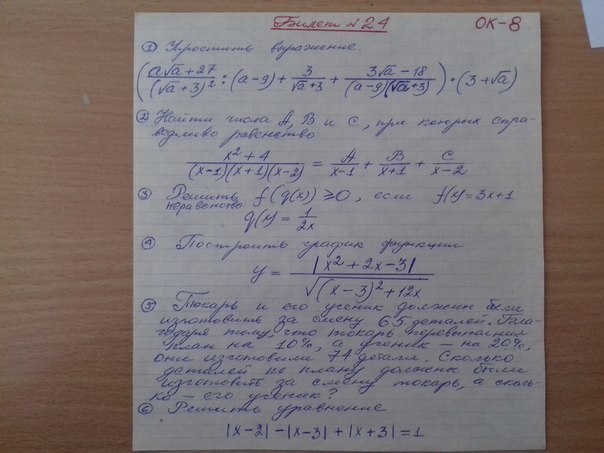 Билет №24 ОК-8
① Упростить выражение.
((a√a+27)/(√a+3)² : (a-9) + 3/(√a+3) + (3√a-18)/((a-9)(√a+3))) · (3+√a)
② Найти числа A, B и C, при которых спра-
ведливо равенство
(x²+4)/((x-1)(x+1)(x-2)) = A/(x-1) + B/(x+1) + C/(x-2)
③ Решить f(g(x)) ≥ 0, если f(x)=3x+1
неравенство
g(x) = 1/(2x)
④ Построить график функции
y = |x²+2x-3|/√((x-3)²+12x)
⑤ Токарь и его ученик должны были
изготовить за смену 65 деталей. Бла-
годаря тому, что токарь перевыполнил
план на 10%, а ученик – на 20%,
они изготовили 74 детали. Сколько
деталей по плану должны были
изготовить за смену токарь, а сколь-
ко – его ученик?
⑥ Решить уравнение
|x-2|-|x-3|+|x+3|=1